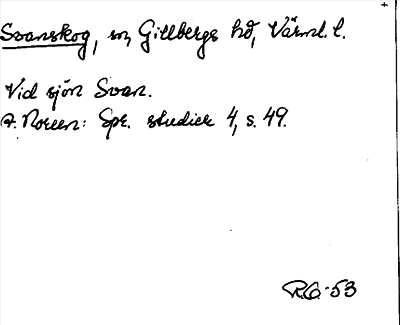 Svanskog, sn, Gillbergs hd, Värml. l.
Vid sjön Svan.
A. Noreen: Spr. studier 4, s. 49.
R.G.-53